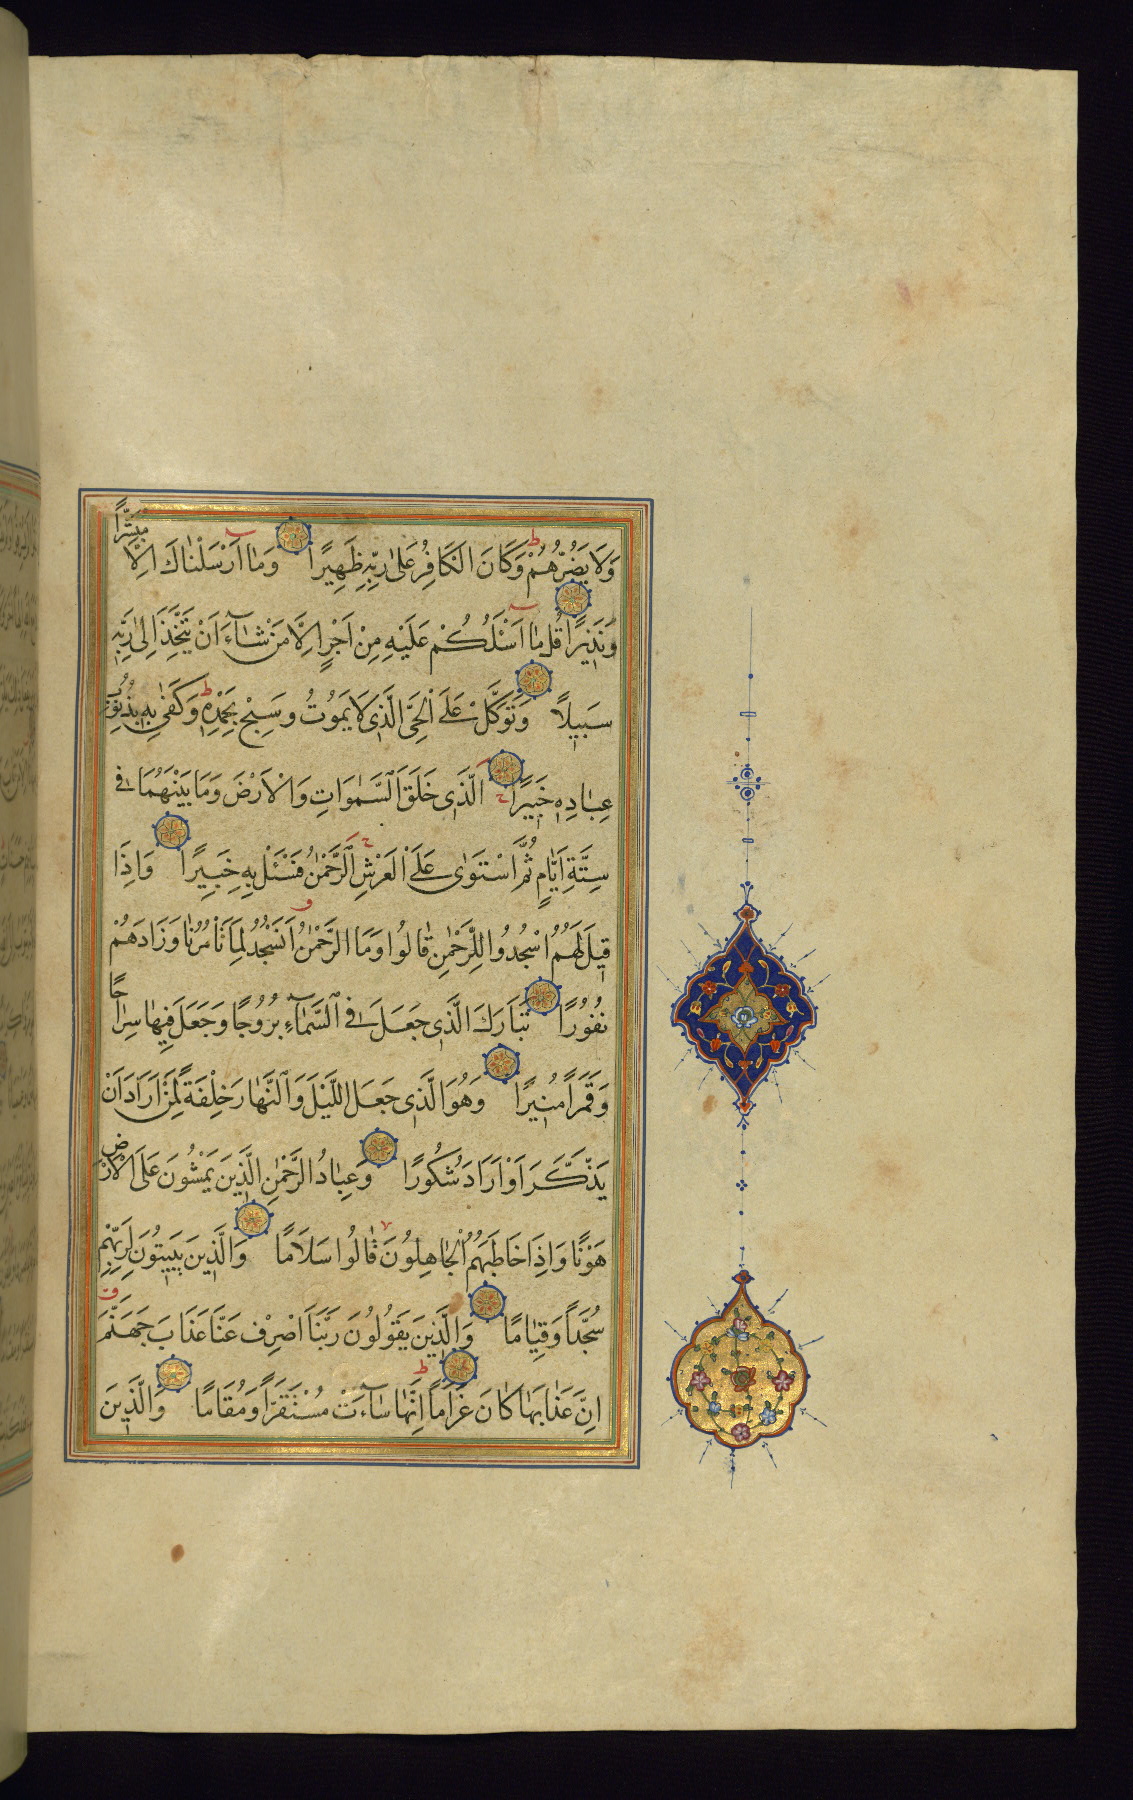 وَلَا يَضُرُّهُمْ وَكَانَ الْكَافِرُ عَلٰى رَبِّهٖ ظَهِيرًا وَمَا اَرْسَلْنَاكَ اِلَّا مُبَشِّرًا
وَنَذِيرًا قُلْ مَا اَسْئَلُكُمْ عَلَيْهِ مِنْ اَجْرٍ اِلَّا مَنْ شَآءَ اَنْ يَتَّخِذَ اِلٰى رَبِّهٖ
سَبِيلًا وَتَوَكَّلْ عَلَى الْحَىِّ الَّذِى لَا يَمُوتُ وَسَبِّحْ بِحَمْدِهٖ وَكَفٰى بِهٖ بِذُنُوبِ
عِبَادِهٖ خَبِيرًا الَّذِى خَلَقَ السَّمٰوَاتِ وَالْاَرْضَ وَمَا بَيْنَهُمَا فِى
سِتَّةِ اَيَّامٍ ثُمَّ اسْتَوٰى عَلَى الْعَرْشِ الرَّحْمٰنُ فَسْئَلْ بِهٖ خَبِيرًا وَاِذَا
قِيلَ لَهُمُ اسْجُدُوا لِلرَّحْمٰنِ قَالُوا وَمَا الرَّحْمٰنُ اَنَسْجُدُ لِمَا تَأْمُرُنَا وَزَادَهُمْ
نُفُورًا تَبَارَكَ الَّذِى جَعَلَ فِى السَّمَآءِ بُرُوجًا وَجَعَلَ فِيهَا سِرَاجًا
وَقَمَرًا مُنِيرًا وَهُوَ الَّذِى جَعَلَ اللَّيْلَ وَالنَّهَارَ خِلْفَةً لِمَنْ اَرَادَ اَنْ
يَذَّكَّرَ اَوْ اَرَادَ شُكُورًا وَعِبَادُ الرَّحْمٰنِ الَّذِينَ يَمْشُونَ عَلَى الْاَرْضِ
هَوْنًا وَاِذَا خَاطَبَهُمُ الْجَاهِلُونَ قَالُوا سَلَامًا وَالَّذِينَ يَبِيتُونَ لِرَبِّهِمْ
سُجَّدًا وَقِيَامًا وَالَّذِينَ يَقُولُونَ رَبَّنَا اصْرِفْ عَنَّا عَذَابَ جَهَنَّمَ
اِنَّ عَذَابَهَا كَانَ غَرَامًا اِنَّهَا سَآءَتْ مُسْتَقَرًّا وَمُقَامًا وَالَّذِينَ